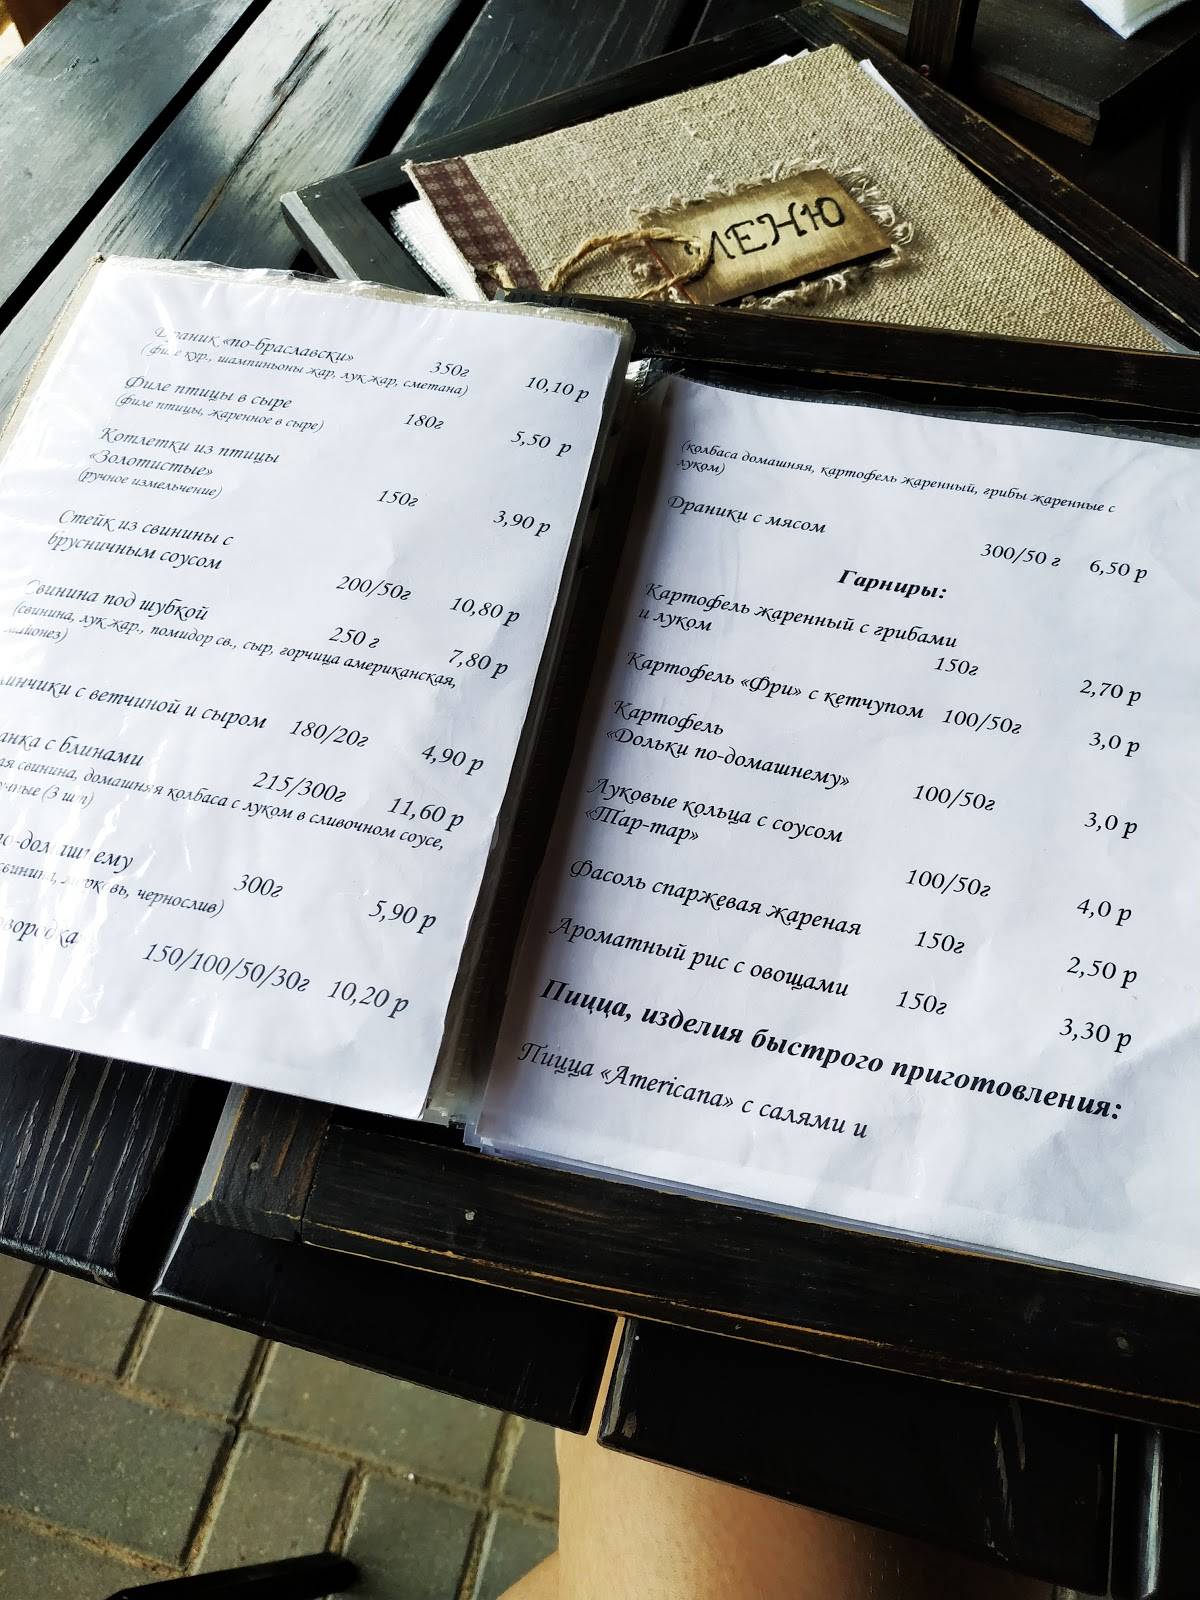 МЕНЮ
Драник «по-браславски»
350г 10,10 р
(филе кур., шампиньоны жар, лук жар, сметана)
Филе птицы в сыре
180г 5,50 р
(филе птицы, жаренное в сыре)
Котлетки из птицы
«Золотистые»
150г 3,90 р
(ручное измельчение)
Стейк из свинины с
брусничным соусом
200/50г 10,80 р
Свинина под шубкой
250 г 7,80 р
(свинина, лук жар., помидор св., сыр, горчица американская,
майонез)
инчики с ветчиной и сыром 180/20г 4,90 р
анка с блинами
215/300г 11,60 р
ая свинина, домашняя колбаса с луком в сливочном соусе,
(3 шт)
по-домашнему
300г 5,90 р
свинина, морковь, чернослив)
овородка
150/100/50/30г 10,20 р
(колбаса домашняя, картофель жаренный, грибы жаренные с
луком)
Драники с мясом
300/50 г 6,50 р
Гарниры:
Картофель жаренный с грибами
и луком
150г 2,70 р
Картофель «Фри» с кетчупом 100/50г 3,0 р
Картофель
«Дольки по-домашнему» 100/50г 3,0 р
Луковые кольца с соусом
«Тар-тар»
100/50г 4,0 р
Фасоль спаржевая жареная 150г 2,50 р
Ароматный рис с овощами 150г 3,30 р
Пицца, изделия быстрого приготовления:
Пицца «Americana» с салями и